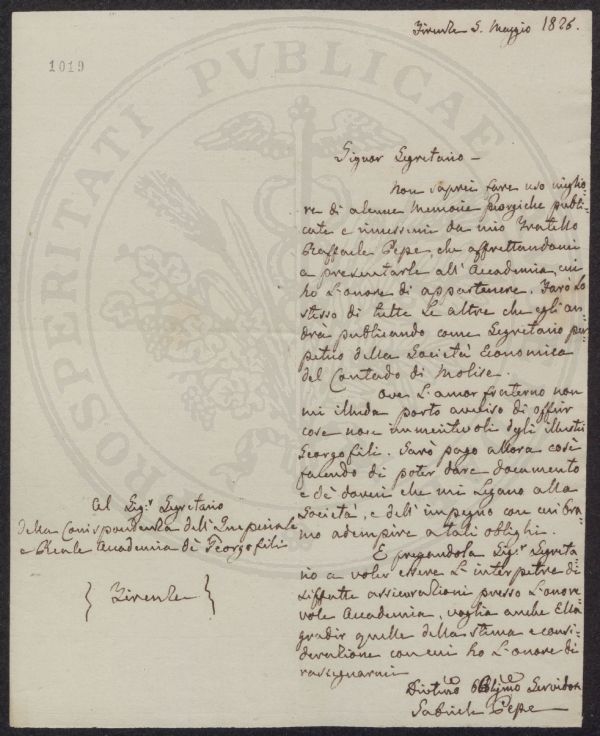 Firenze 5. Maggio 1826.
1019
PROSPERITATI PVBLICAE
Signor Segretario —
Non saprei fare uso miglio=
re di alcune Memorie Georgiche publi=
cate e rimessemi da mio Fratello
Raffaele Pepe, che affrettandomi
a presentarle all'Accademia, cui
ho l'onore di appartenere. Farò lo
stesso di tutte le altre che egli an=
drà publicando come Segretario per=
petuo della Società Economica
del Contado di Molise.
Ove l'amor fraterno non
mi illuda porto avviso di offrir
cose non immeritevoli degli illustri
Georgofili. Sarò pago allora così
facendo di poter dare documento
e de' doveri che mi legano alla
Società, e dell'impegno con cui bra=
mo adempire a tali oblighi.
E pregandola Sig.r Segreta=
rio a voler essere l'interpetre di
siffatte assicurazioni presso l'onore=
vole Accademia, voglia anche Ella
gradir quelle della stima e consi=
derazione con cui ho l'onore di
rassegnarmi
Al Sig.r Segretario
della Corrispondenza dell'Imperiale
e Reale Accademia de' Georgofili
Firenze
Servidore
Gabriele Pepe